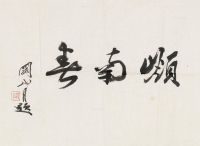 嶺南春
關山月題